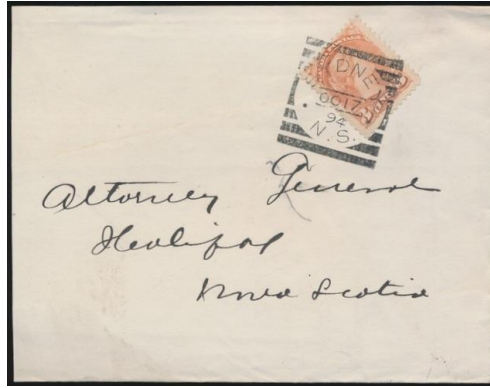 SIDNEY
OC 17
94
N.S.
Attorney General
Halifax
Nova Scotia